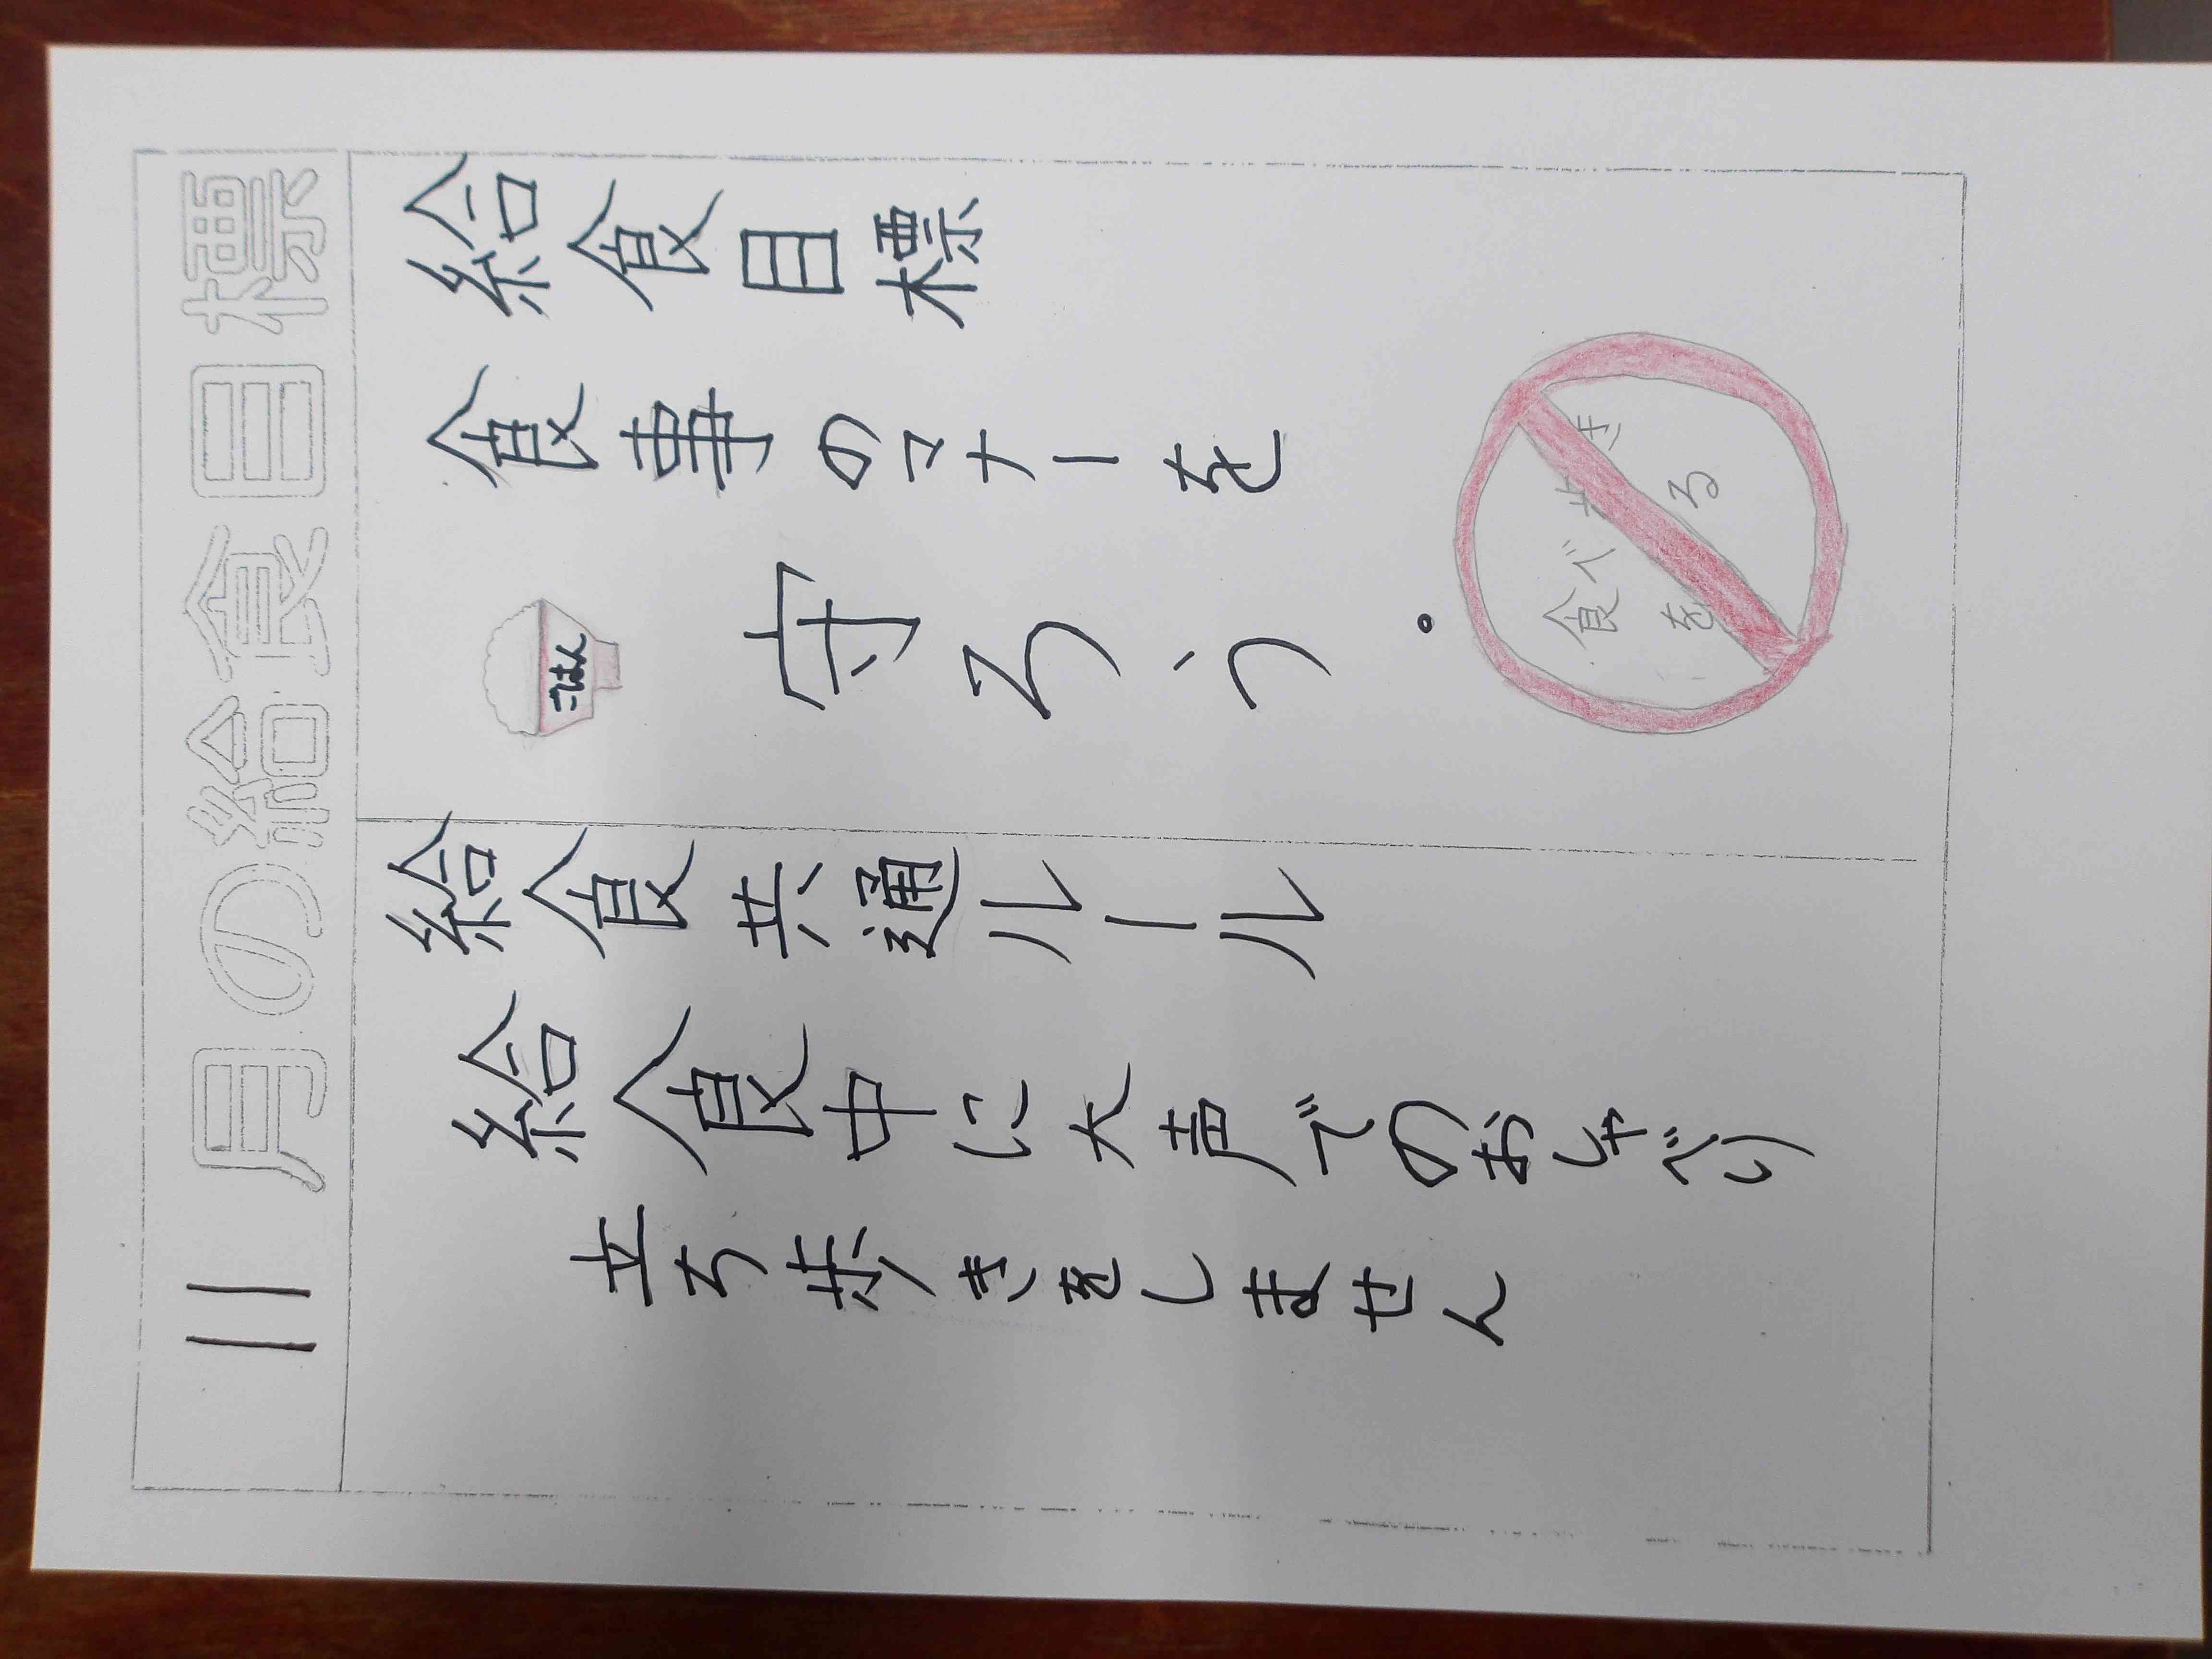 11月の給食目標
給食目標
食事のマナーを
守ろう。
ごはん
食べ歩き
を る
給食共通ルール
給食中に大声でのおしゃべり
立ち歩きをしません